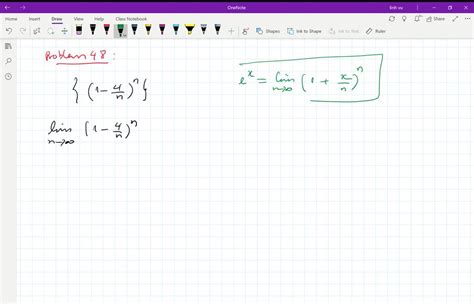 OneNote
File Home Insert Draw View Help Class Notebook
Shapes Ink to Shape Ink to Text
Problem 48:
{ (1 - 4/n)^n }
e^x = lim n→∞ (1 + x/n)^n
lim n→∞ (1 - 4/n)^n